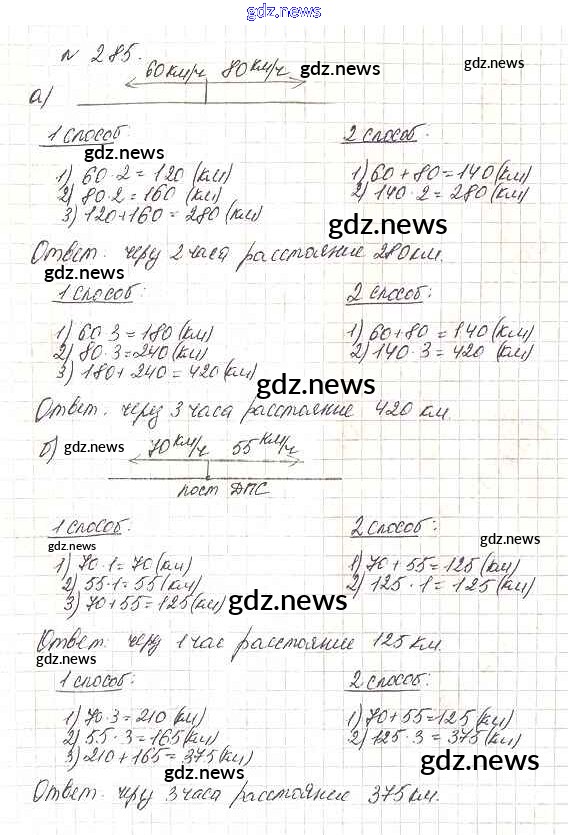 gdz.news
N 285.
60 км/ч 80 км/ч gdz.news
а)
1 способ: 2 способ:
gdz.news
1) 60·2=120 (км) 1) 60+80=140 (км)
2) 80·2=160 (км) 2) 140·2=280 (км)
3) 120+160=280 (км)
gdz.news
Ответ: через 2 часа расстояние 280 км.
gdz.news
1 способ: 2 способ:
gdz.news
1) 60·3=180 (км) 1) 60+80=140 (км)
2) 80·3=240 (км) 2) 140·3=420 (км)
3) 180+240=420 (км)
gdz.news
Ответ: через 3 часа расстояние 420 км.
б) gdz.news 70 км/ч 55 км/ч
пост ДПС
1 способ: 2 способ:
gdz.news
gdz.news
1) 70·1=70 (км) 1) 70+55=125 (км)
2) 55·1=55 (км) 2) 125·1=125 (км)
3) 70+55=125 (км) gdz.news
Ответ: через 1 час расстояние 125 км.
gdz.news
1 способ: 2 способ:
1) 70·3=210 (км) 1) 70+55=125 (км)
2) 55·3=165 (км) 2) 125·3=375 (км)
3) 210+165=375 (км)
gdz.news gdz.news
Ответ: через 3 часа расстояние 375 км.